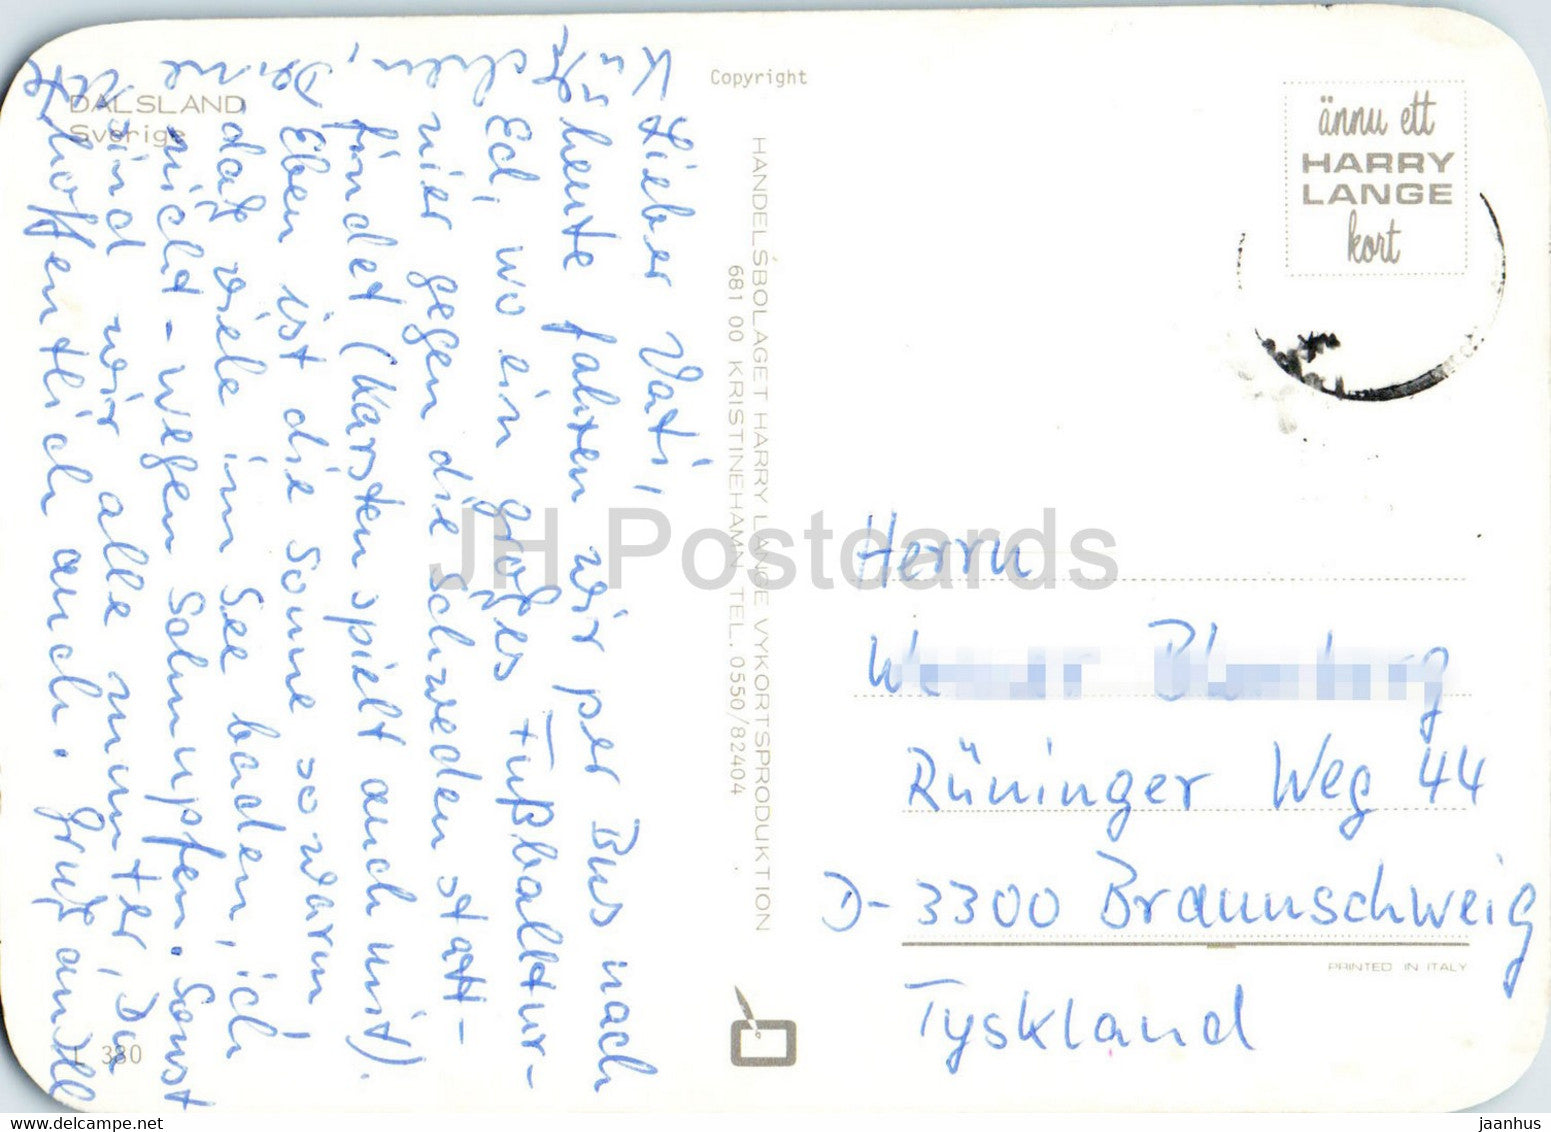 DALSLAND
Sverige
Lieber Vati,
heute fahren wir per Bus nach
Ed, wo ein großes Fußballtur-
nier gegen die Schweden statt-
findet (Karsten spielt auch mit).
Eben ist die Sonne so warm
daß viele im See baden, ich
nicht - wegen Schnupfen. Sonst
sind wir alle munter, Du
hoffentlich auch. Gruß
L 380
Copyright
HANDELSBOLAGET HARRY LANGE VYKORTSPRODUKTION
681 00 KRISTINEHAMN TEL. 0550/82404
ännu ett
HARRY
LANGE
kort
Herrn
Rüninger Weg 44
D-3300 Braunschweig
Tyskland
PRINTED IN ITALY
JH Postcards
delcampe.net
jaanhus